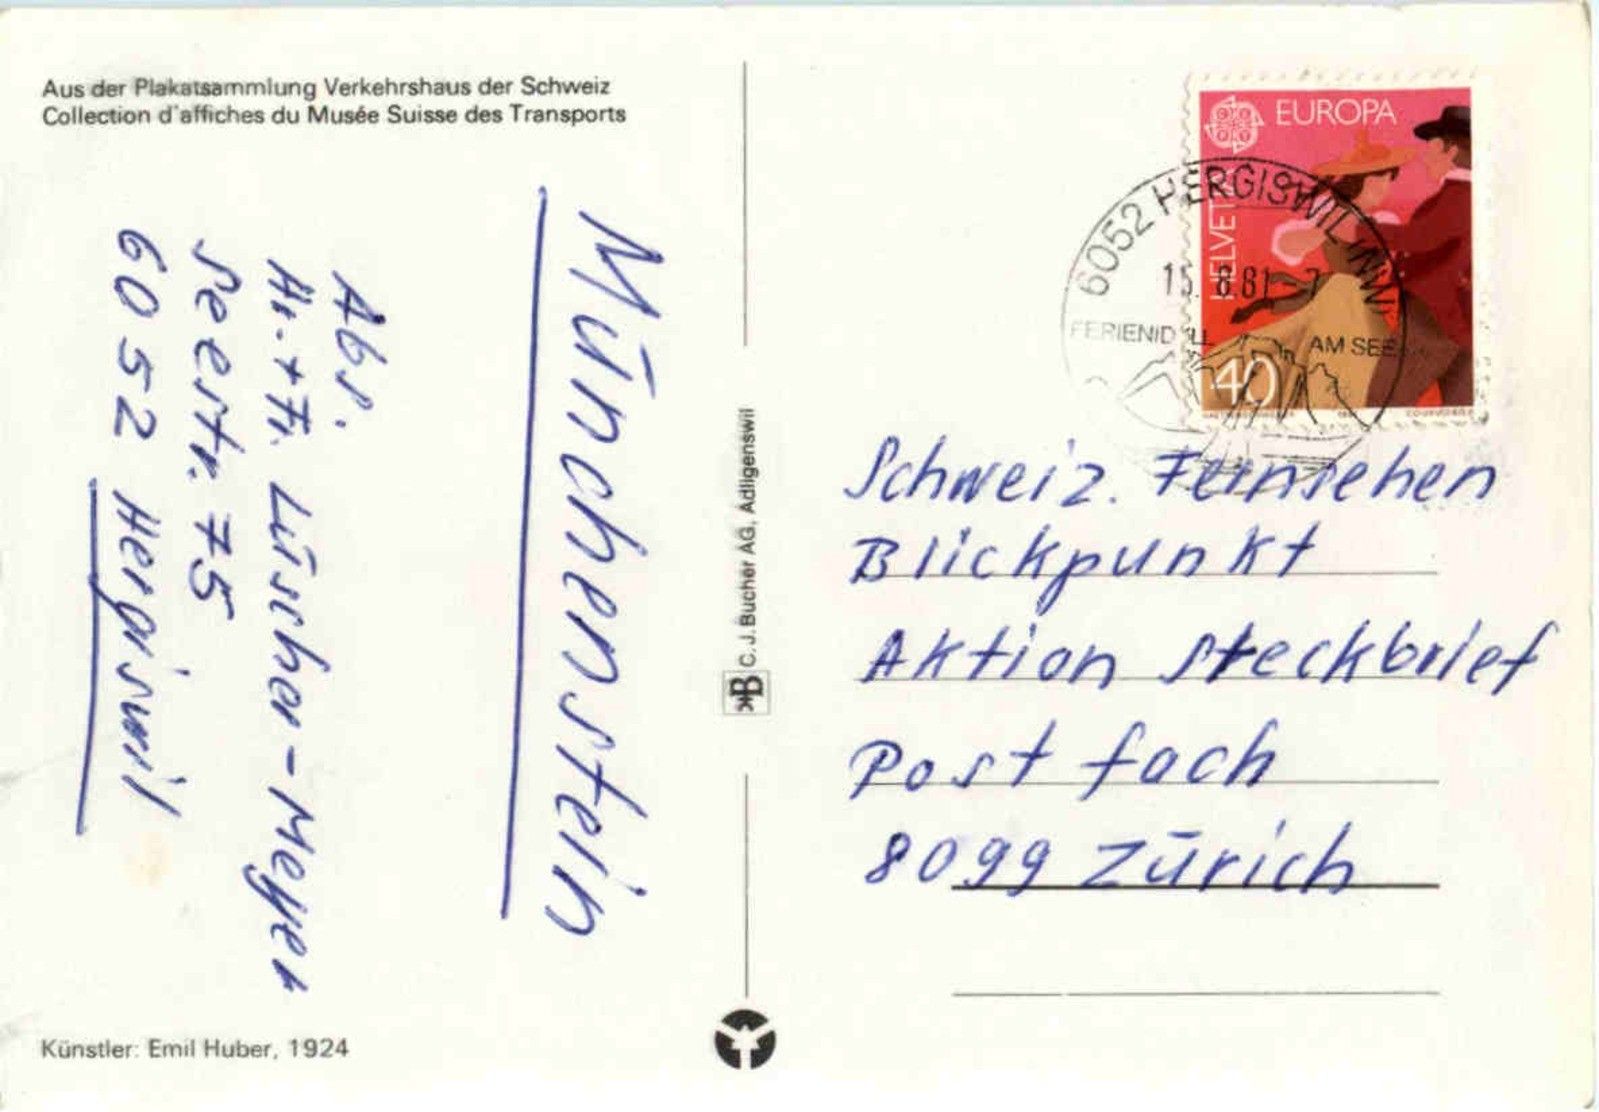 Aus der Plakatsammlung Verkehrshaus der Schweiz
Collection d'affiches du Musée Suisse des Transports
Münchenstein
Abs.
Hr. + Fr. Lüscher-Meyer
Seestr. 75
6052 Hergiswil
Künstler: Emil Huber, 1924
C. J. Bucher AG, Adligenswil
EUROPA
HELVETIA
40
6052 HERGISWIL (NW)
15. 8. 81 - 7
FERIENIDYLL AM SEE
Schweiz. Fernsehen
Blickpunkt
Aktion Steckbrief
Postfach
8099 Zürich